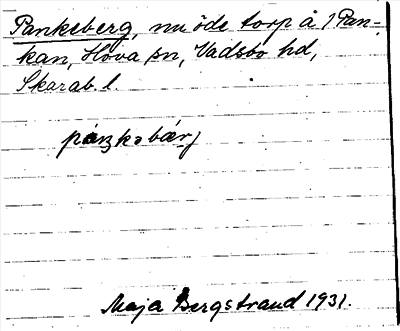 Pankeberg, nu öde torp å 1 Pan-
kan, Hova sn, Vadsbo hd,
Skarab. l.
Maja Bergstrand 1931.